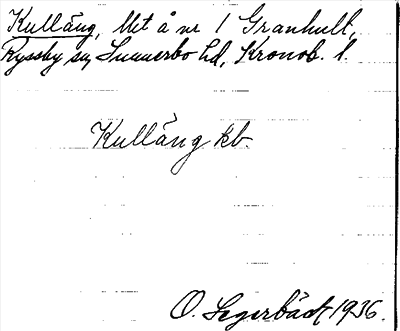 Kulläng, lht å nr 1 Granhult,
Ryssby sn, Sunnerbo hd, Kronob. l.
Kulläng kb.
O. Segerbäck 1936.